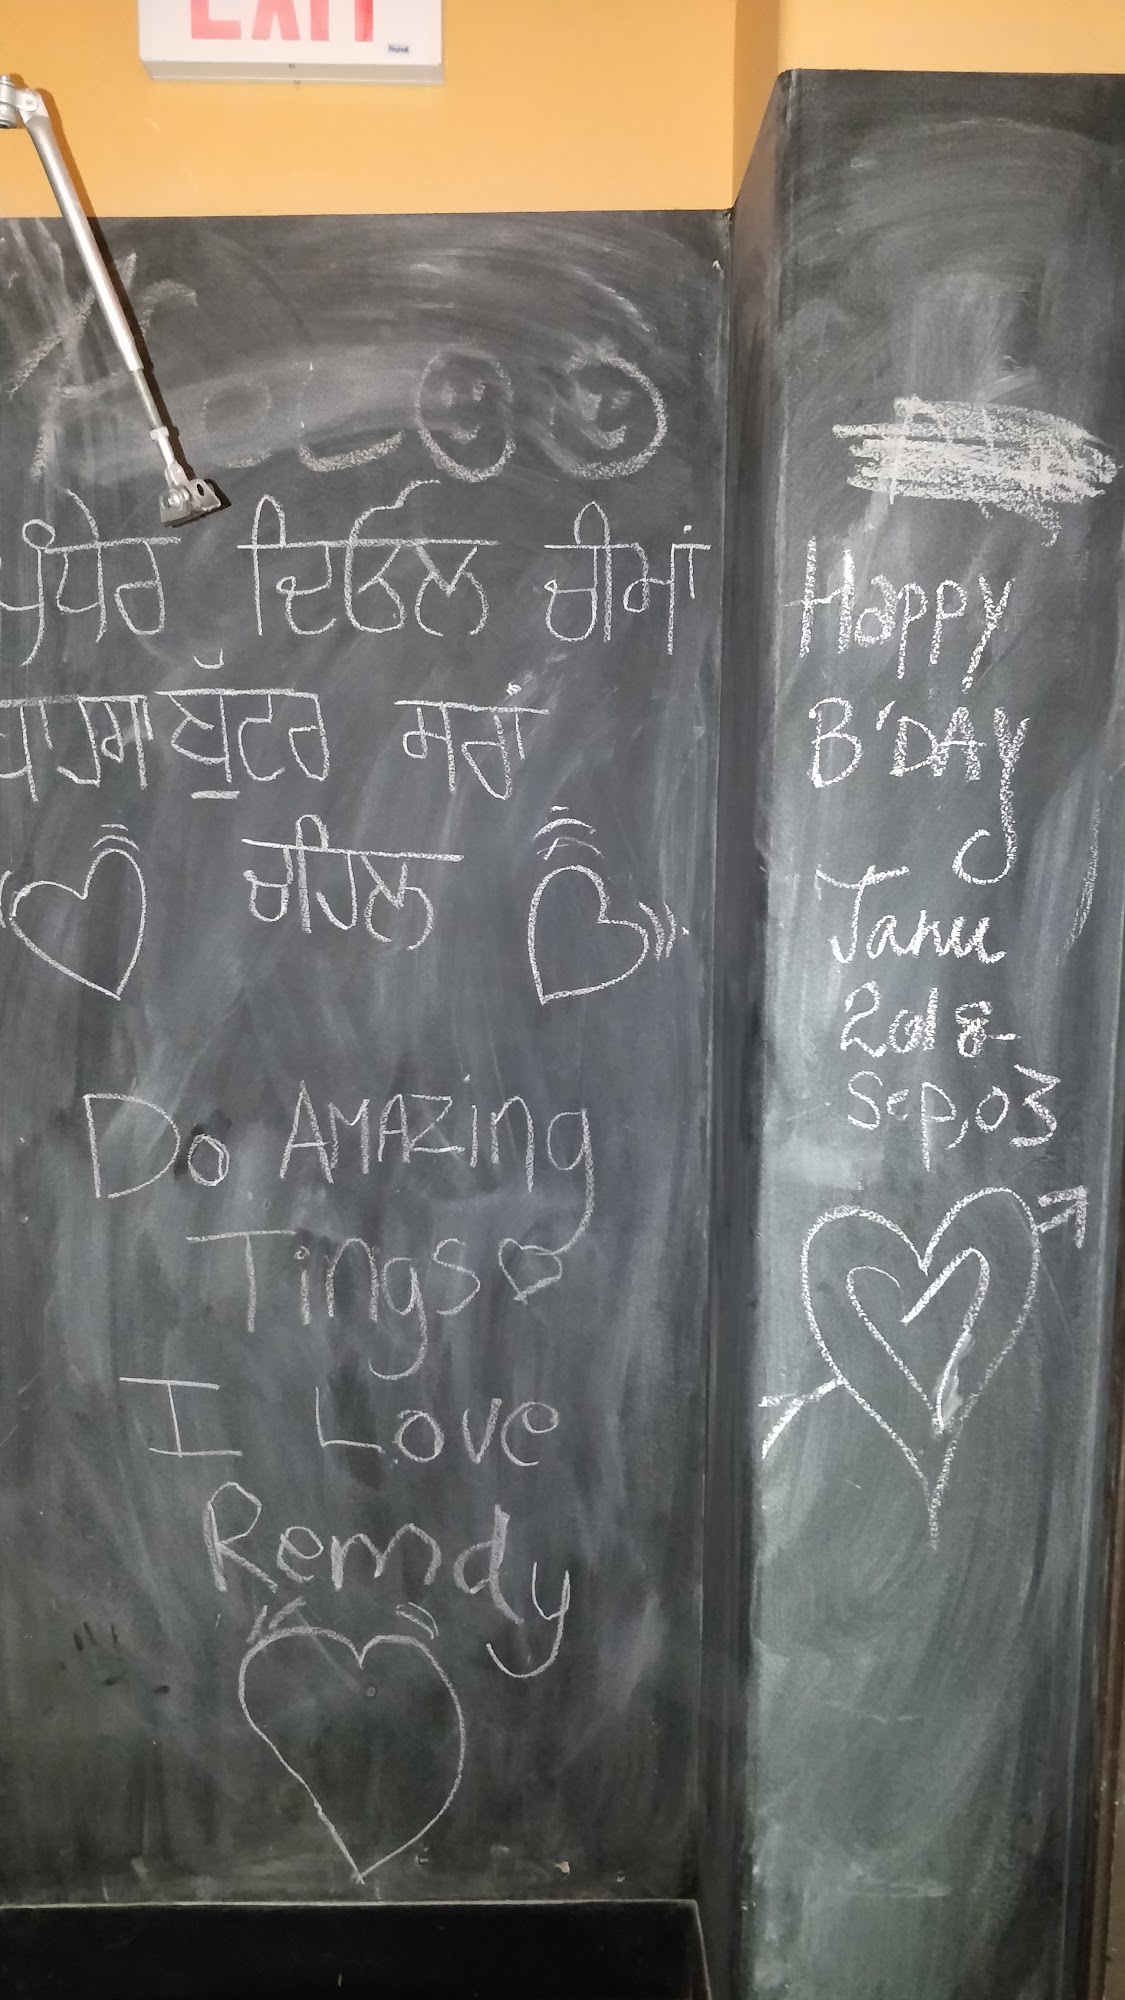 EXIT
ਪੰਧੇਰ ਦਿਓਲ ਚੀਮਾਂ
ਬੁੱਟਰ ਸਰਾਂ
ਚਹਿਲ
Do AMAZing
Tings
I Love
Remdy
Happy
B'DAY
Janu
2018-
Sep,03